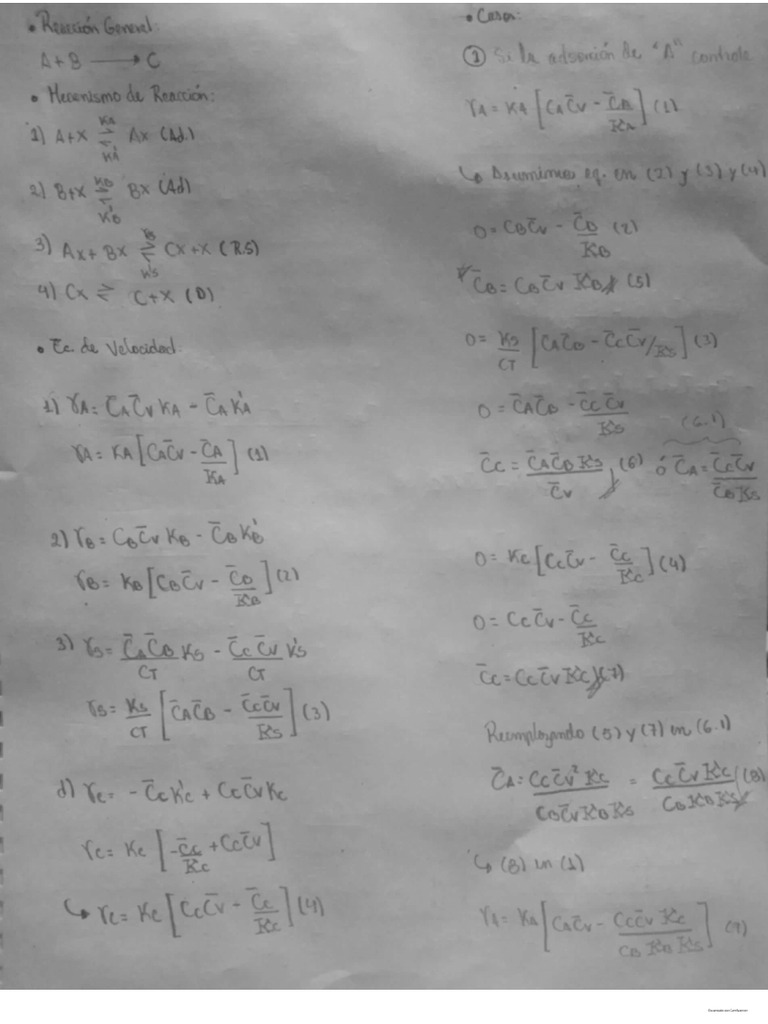 • Reacción General:
A + B ⟶ C
• Mecanismo de Reacción:
1) A+X ⇌ AX (Ad.)
KA
K'A
2) B+X ⇌ BX (Ad)
KB
K'B
3) AX + BX ⇌ CX + X (R.S)
K's
4) CX ⇌ C+X (D)
• Ec. de Velocidad.
1) rA = C̄A C̄V KA - C̄A K'A
rA = KA [CA C̄V - C̄A/KA] (1)
2) rB = CB C̄V KB - C̄B K'B
rB = KB [CB C̄V - C̄B/KB] (2)
3) rS = C̄A C̄B/CT KS - C̄C C̄V/CT K'S
rS = KS/CT [C̄A C̄B - C̄C C̄V/KS] (3)
d) rC = - C̄C K'C + CC C̄V KC
rC = KC [-C̄C/KC + CC C̄V]
↳ rC = KC [CC C̄V - C̄C/KC] (4)
• Casos:
① Si la adsorción de "A" controla
rA = KA [CA C̄V - C̄A/KA] (1)
↳ Asumimos eq. en (2) y (3) y (4)
0 = CB C̄V - C̄B/KB (2)
C̄B = CB C̄V KB (5)
0 = KS/CT [C̄A C̄B - C̄C C̄V/KS] (3)
0 = C̄A C̄B - C̄C C̄V/KS
(6.1)
C̄C = C̄A C̄B KS/C̄V (6) ó C̄A = C̄C C̄V/C̄B KS
0 = KC [CC C̄V - C̄C/KC] (4)
0 = CC C̄V - C̄C/KC
C̄C = CC C̄V KC (7)
Reemplazando (5) y (7) en (6.1)
C̄A = CC C̄V² KC/CB C̄V KB KS = CC C̄V KC/CB KB KS (8)
↳ (8) en (1)
rA = KA [CA C̄V - CC C̄V KC/CB KB KS] (9)